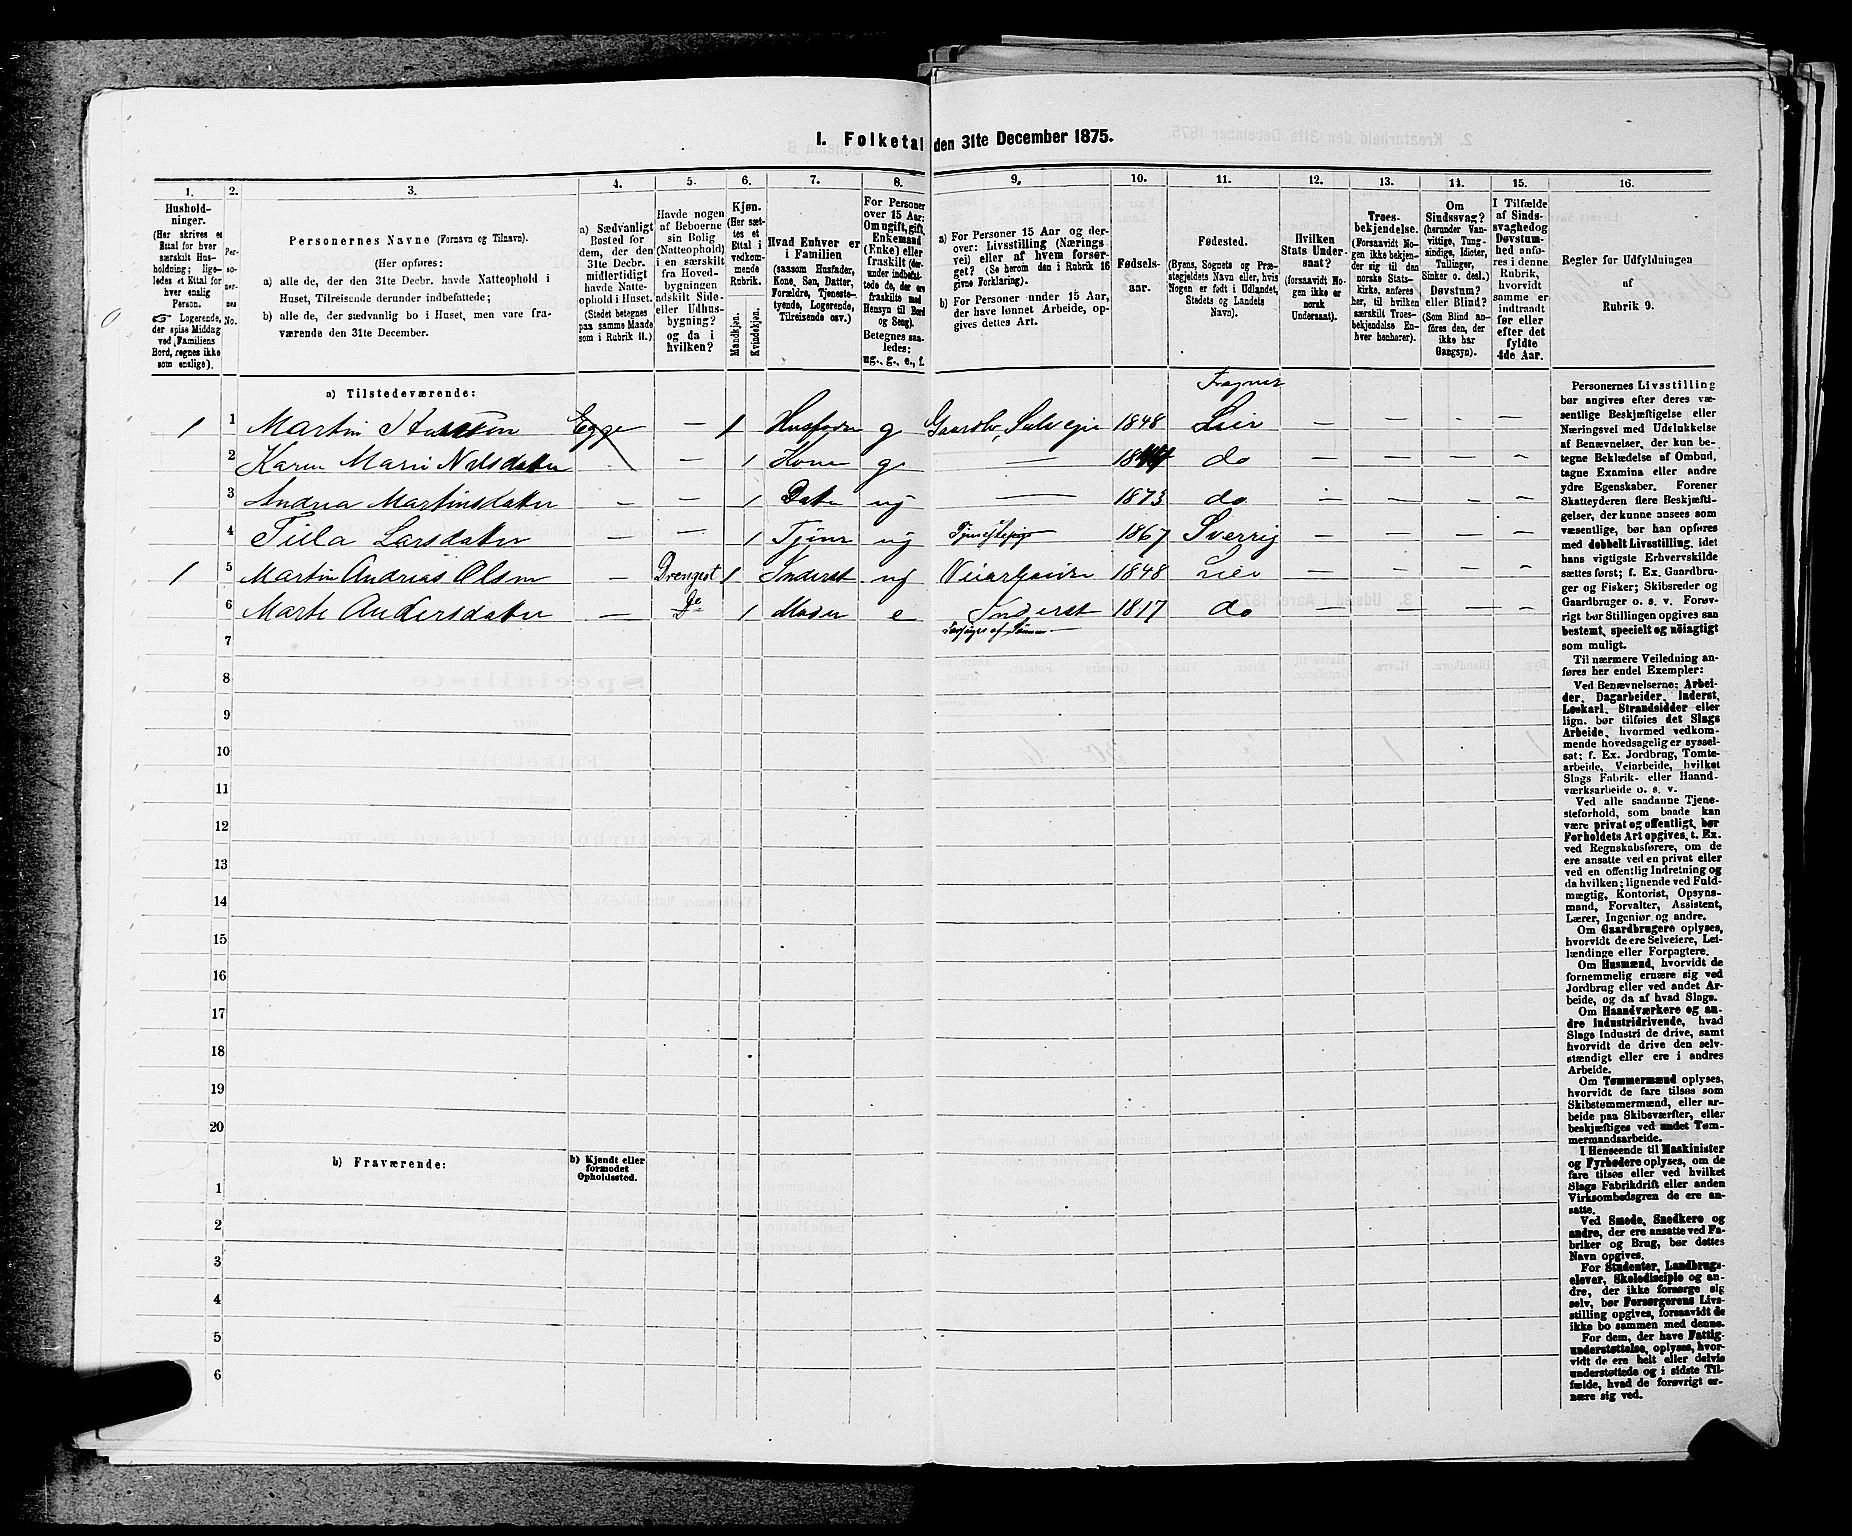 I. Folketal den 31te December 1875.
1. 2. 3. 4. 5. 6. 7. 8. 9. 10. 11. 12. 13. 14. 15. 16.
Hushold-
ninger.
(Her skrives et
Ettal for hver
særskilt Hus-
holdning; lige-
ledes et Ettal
for hver
enslig
Person.
☞ Logerende,
der spise Middag
ved Familiens
Bord, regnes ikke
som enslige).
Per-
so-
ner-
nes
No.
Personernes Navne (Fornavn og Tilnavn).
(Her opføres:
a) alle de, der den 31te Decbr. havde Natteophold i
Huset, Tilreisende derunder indbefattede;
b) alle de, der sædvanlig bo i Huset, men vare fra-
værende den 31te December.
a) Sædvanligt
Bosted for
dem, der den
31te Decbr.
midlertidigt
havde Natte-
ophold i Huset.
(Stedet betegnes
paa samme Maade
som i Rubrik 11.)
Havde nogen
af Beboerne
sin Bolig
(Natteophold)
i en særskilt
fra Hoved-
bygningen
adskilt Side-
eller Udhus-
bygning?
og da i
hvilken?
Kjøn.
(Her sæt-
tes et
Ettal i
vedkom-
mende
Rubrik.
Mandkjøn.
Kvindekjøn.
Hvad Enhver er
i Familien
(saasom Husfader,
Kone, Søn, Datter,
Forældre, Tjeneste-
tyende, Logerende,
Tilreisende osv.)
For Personer
over 15 Aar:
Om ugift, gift,
Enkemand
(Enke) eller
fraskilt
Betegnes saa-
ledes:
ug., g., e., f.
a) For Personer 15 Aar og der-
over: Livsstilling (Nærings-
vei) eller af hvem forsør-
get? (Se herom den i Rubrik 16
givne Forklaring).
b) For Personer under 15 Aar,
der have lønnet Arbeide, op-
gives dettes Art.
Fødsels-
aar.
Fødested.
(Byens, Sognets og Præ-
stegjeldets Navn eller, hvis
Nogen er født i Udlandet,
Stedets og Landets
Navn).
Hvilken
Stats Under-
saat?
(forsaavidt No-
gen ikke er
norsk
Undersaat).
Troes-
bekjendelse.
(Forsaavidt No-
gen ikke bekjen-
der sig til den
norske Stats-
kirke, anføres
her, til hvilken
særskilt Troes-
bekjendelse En-
hver henhører).
Om
Sindssvag?
(herunder Van-
vittige, Tung-
sindige, Idioter,
Tullinger,
Sinker o. desl.)
Døvstum?
eller Blind?
(Som Blind an-
føres den, der
ikke har
Gangsyn).
I Tilfælde
af Sinds-
svaghed og
Døvstum-
hed anfø-
res i denne
Rubrik,
hvorvidt
samme er
indtraadt
før eller
efter det
fyldte
4de Aar.
Regler for Udfyldningen
af
Rubrik 9.
a) Tilstedeværende:
Fragner
1 1 Martin Egge — 1 Husfader g Gaardbr, Selveier 1848 Lier — — — —
2 Karen Marie Nilsdatter — 1 Kone g — do — — — —
3 Andrea Martinsdatter — — 1 Datter ug — 1873 do — — — —
4 Larsdatter — — 1 Tjener ug 1867 Sverrig — — — —
1 5 Martin Andrias Olsen — Drengest 1 Inderst ug Veiarbeider 1848 Lier — — — —
6 Marte Andersdatter — Do 1 Moder e Inderst 1817 do — — — —
Forsørges af Sønnen
7
8
9
10
11
12
13
14
15
16
17
18
19
20
b) Fraværende:
b) Kjendt eller
formodet
Opholdssted.
1
2
3
4
5
6
Personernes Livsstilling
bør angives efter deres væ-
sentlige Beskjæftigelse eller
Næringsvei med Udelukkelse
af Benævnelser, der kun be-
tegne Beklædelse af Ombud,
tagne Examina eller andre
ydre Egenskaber. Forener
Skatteyderen flere Beskjæfti-
gelser, der kunne ansees som
væsentlige, bør han opføres
med dobbelt Livsstilling, idet
hans vigtigste Erhvervskilde
sættes først; f. Ex. Gaardbru-
ger og Fisker; Skibsreder og
Gaardbruger o. s. v. Forøv-
rigt bør Stillingen opgives saa
bestemt, specielt og nøiagtigt
som muligt.
Til nærmere Veiledning an-
føres her endel Exempler:
Ved Benævnelserne: Arbei-
der, Dagarbeider, Inderst,
Løskarl, Strandsidder eller
lign. bør tilføies det Slags
Arbeide, hvormed vedkom-
mende hovedsagelig er syssel-
sat; f. Ex. Jordbrug, Tomte-
arbeide, Veiarbeide, hvilket
Slags Fabrik- eller Haand-
værksarbeide o. s. v.
Ved alle saadanne Tjene-
steforhold, som baade kan
være privat og offentligt, bør
Forholdets Art opgives, t. Ex.
ved Regnskabsførere, om de
ere ansatte ved en privat eller
ved en offentlig Indretning og
da hvilken; lignende ved Fuld-
mægtig, Kontorist, Opsyns-
mand, Forvalter, Assistent,
Lærer, Ingeniør og andre.
Om Gaardbrugere oplyses,
hvorvidt de ere Selveiere, Lei-
lændinge eller Forpagtere.
Om Husmænd, hvorvidt de
fornemmelig ernære sig ved
Jordbrug eller ved andet Ar-
beide, og da af hvad Slags.
Om Haandværkere og an-
dre Industridrivende, hvad
Slags Industri de drive, samt
hvorvidt de drive den selv-
stændigt eller ere i andres
Arbeide.
Om Tømmermænd oplyses,
hvorvidt de fare tilsøs som
Skibstømmermænd, eller ar-
beide paa Skibsværfter, eller
beskjæftiges ved andet Tøm-
mermandsarbeide.
I Henseende til Maskinister
og Fyrbødere oplyses, om de
fare tilsøs eller ved hvilket
Slags Fabrikdrift eller anden
Virksomhedsgren de ere an-
satte.
Ved Smede, Snedkere og
andre, der ere ansatte ved Fa-
briker og Brug, bør dettes
Navn opgives.
For Studenter, Landbrugs-
elever, Skoledisciple og an-
dre, der ikke forsørge sig
selv, bør Forsørgerens Livs-
stilling opgives, forsaavidt de
ikke bo sammen med denne.
For dem, der have Fattig-
understøttelse, oplyses, hvor-
vidt de ere helt eller delvis
understøttede og i sidste Til-
fælde, hvad de forøvrigt er-
nære sig ved.